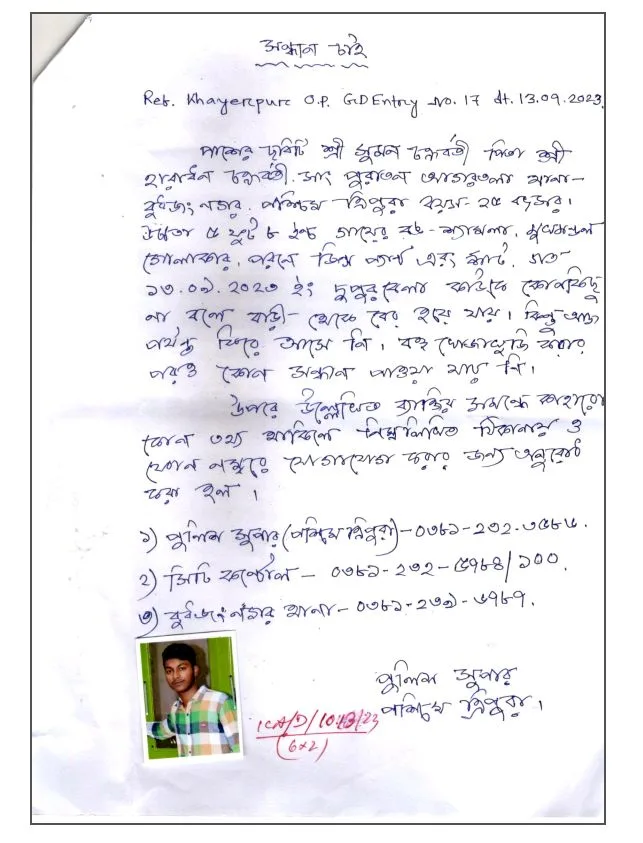 সন্ধান চাই
Ref. Khayerpur O.P. GDEntry No. 17 dt. 13.09.2023.
পাশের ছবিটি শ্রী সুমন চক্রবর্তী পিতা শ্রী
হারাধন চক্রবর্তী. সাং পুরাতন আগরতলা থানা-
বুধজং নগর. পশ্চিম ত্রিপুরা বয়স- ২৫ বৎসর।
উচ্চতা ৫ ফুট ৮ ইঞ্চি গায়ের রঙ - শ্যামলা, মুখমন্ডল
গোলাকার, পরনে জিন্স প্যান্ট এবং সার্ট, গত-
১৩.০৯.২০২৩ ইং দুপুর বেলা কাউকে কোনকিছু
না বলে বাড়ী- থেকে বের হয়ে যায়। কিন্তু আজ
পর্যন্ত ফিরে আসে নি। বহু খোজাখুজি করার
পরও কোন সন্ধান পাওয়া যায় নি।
উপরে উল্লেখিত ব্যাক্তির সমন্ধে কাহারো
কোন তথ্য থাকিলে নিম্নলিখিত ঠিকানায় ও
ফোন নম্বরে যোগাযোগ করার জন্য অনুরোধ
করা হল।
১) পুলিশ সুপার (পশ্চিম ত্রিপুরা) - ০৩৮১-২৩২-৩৫৮৬.
২) সিটি কন্ট্রোল - ০৩৮১-২৩২-৫৭৮৪/১০০.
৩) বুধজং নগর থানা - ০৩৮১-২৩৯-৬৭৮৭.
পুলিশ সুপার
পশ্চিম ত্রিপুরা।
ICA/D/ /23
(6x2)